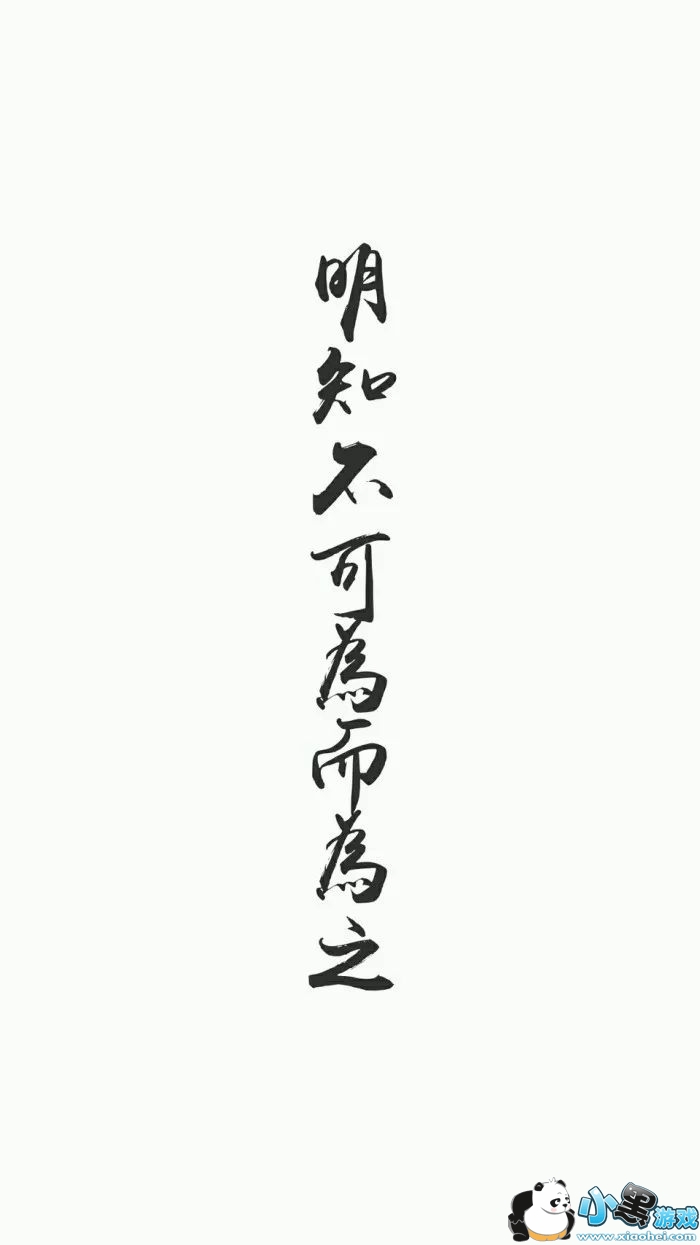 明知不可為而為之
小黑游戏
www.xiaohei.com